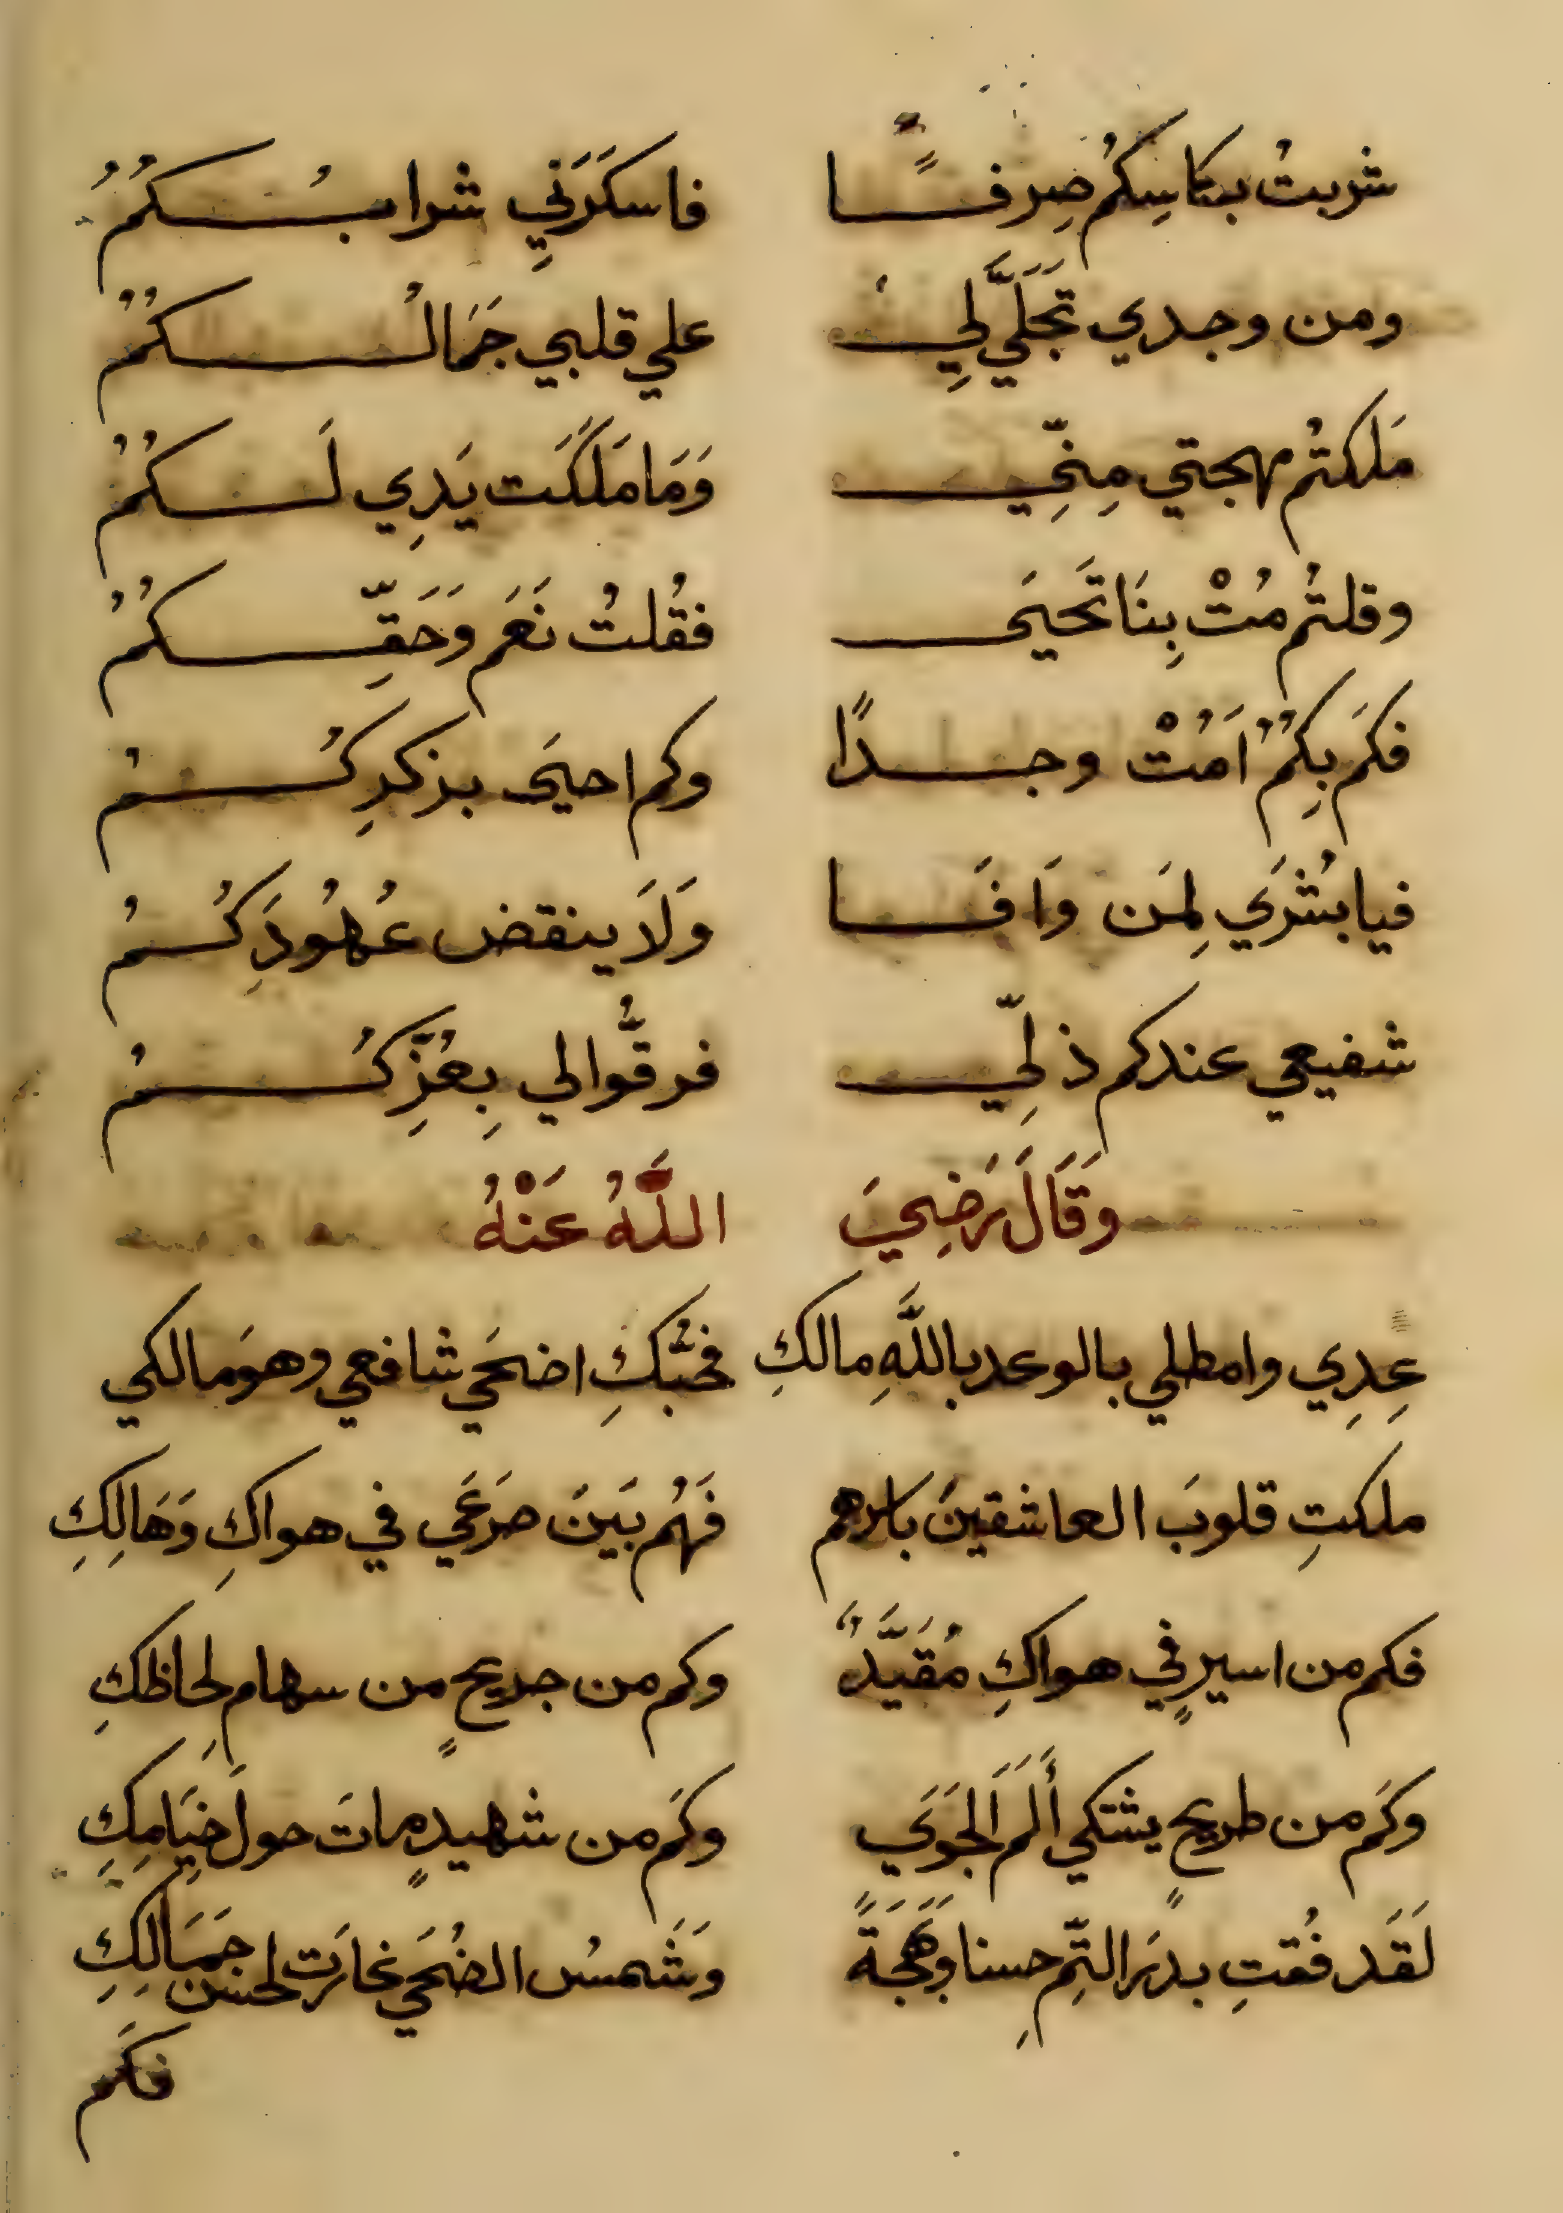 شربتُ بكاسِكُم صِرفًا فاسكَرَنِي شرابُكُمُ
ومن وجدي تَجَلَّي لِي علي قلبي جَمَالُكُمُ
مَلكتُم مهجتي مِنِّي وَمَا مَلَكَت يَدِي لَكُمُ
وقلتُم مُتْ بِنَا تَحيَى فقُلتُ نَعَم وَحَقِّكُمُ
فكَم بِكُمُ اَمُتْ وجدًا وكم احيَى بذكرِكُمُ
فيا بشرَي لِمَن وَافَا وَلَا ينقض عُهُودَكُمُ
شفيعي عندكم ذلِّي فرقُّوا لي بِعُزِّكُمُ
وَقَالَ رَضِيَ اللَّهُ عَنْهُ
عِدِي وامطلي بالوعد باللَّهِ مالكِ فحُبُّكِ اضحَي شافعي وهوَ مالكي
ملكتِ قلوبَ العاشقينَ باسرهم فَهُم بَينَ صَرعَي في هواكِ وَهَالِكِ
فكم من اسيرٍ في هواكِ مُقَيَّدٌ وكم من جريحٍ من سهام لِحاظكِ
وكَم من طريحٍ يشتكي أَلَمَ الجَوَي وكَم من شهيدٍ ماتَ حولَ خيَامِكِ
لَقَد فُقتِ بدرَ التِّمِ حسنا وَبَهجَةً وَشَمسُ الضُحَي غارَت لحسن جَمَالِكِ
فكَم